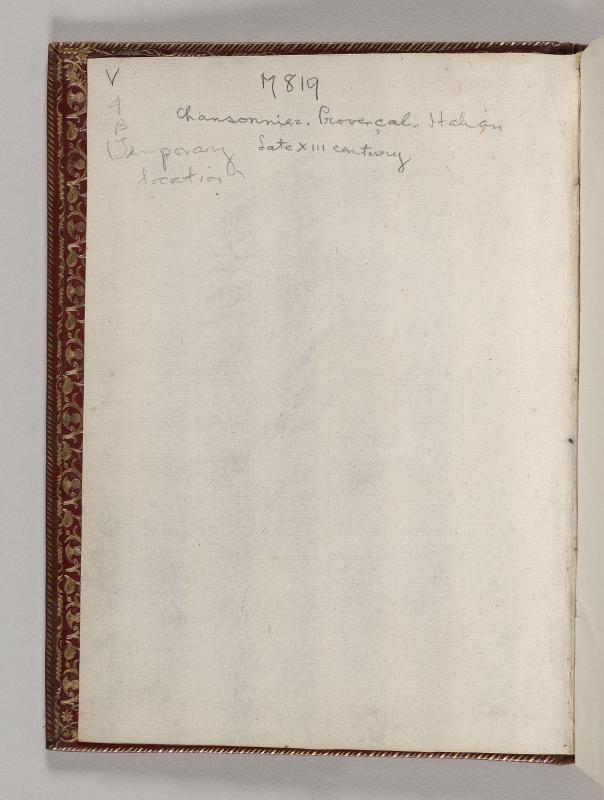 V
M 819
A
Chansonnier. Provençal. Italian
B
Late XIII century
Temporary
location